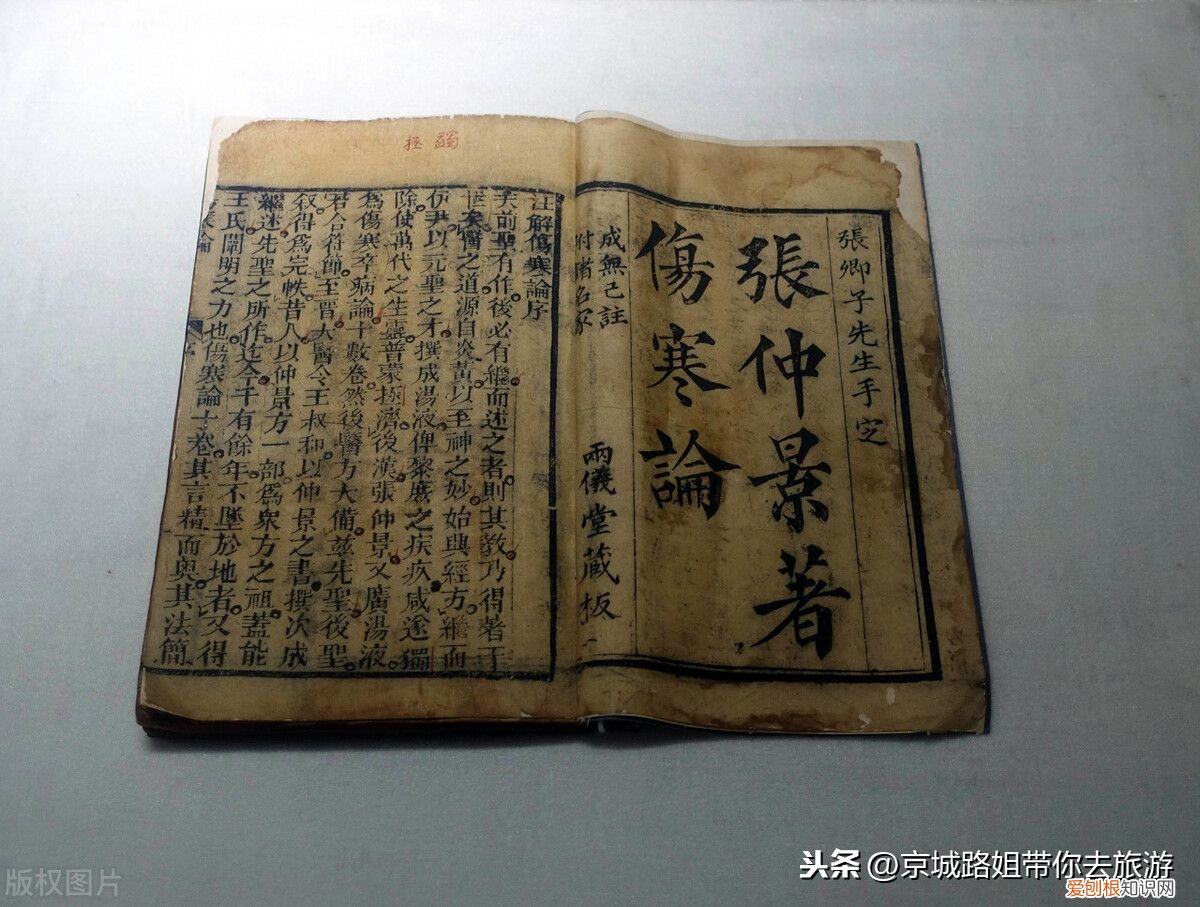 張卿子先生手㝎
張仲景著
傷寒論
成無己註
附諸名家
兩儀堂藏板
蠲 拯
注解傷寒論序
夫前聖有作後必有繼而述之者則其教乃得著于
世矣醫之道源自炎黃以至神之妙始興經方繼而
伊尹以元聖之才撰成湯液俾黎庶之疾疢咸遂獨
除使萬代之生靈普蒙極濟後漢張仲景又廣湯液
爲傷寒卒病論十數卷然後醫方大備茲先聖後聖
若合符節至晉太醫令王叔和以仲景之書撰次成
叙得爲完帙昔人以仲景方一部爲衆方之祖蓋能
繼述先聖之所作迄今千有餘年不墜於地者又得
王氏闡明之力也傷寒論十卷其言精而奧其法簡
版权图片
头条 @京城路姐带你去旅游
爱刨根知识网